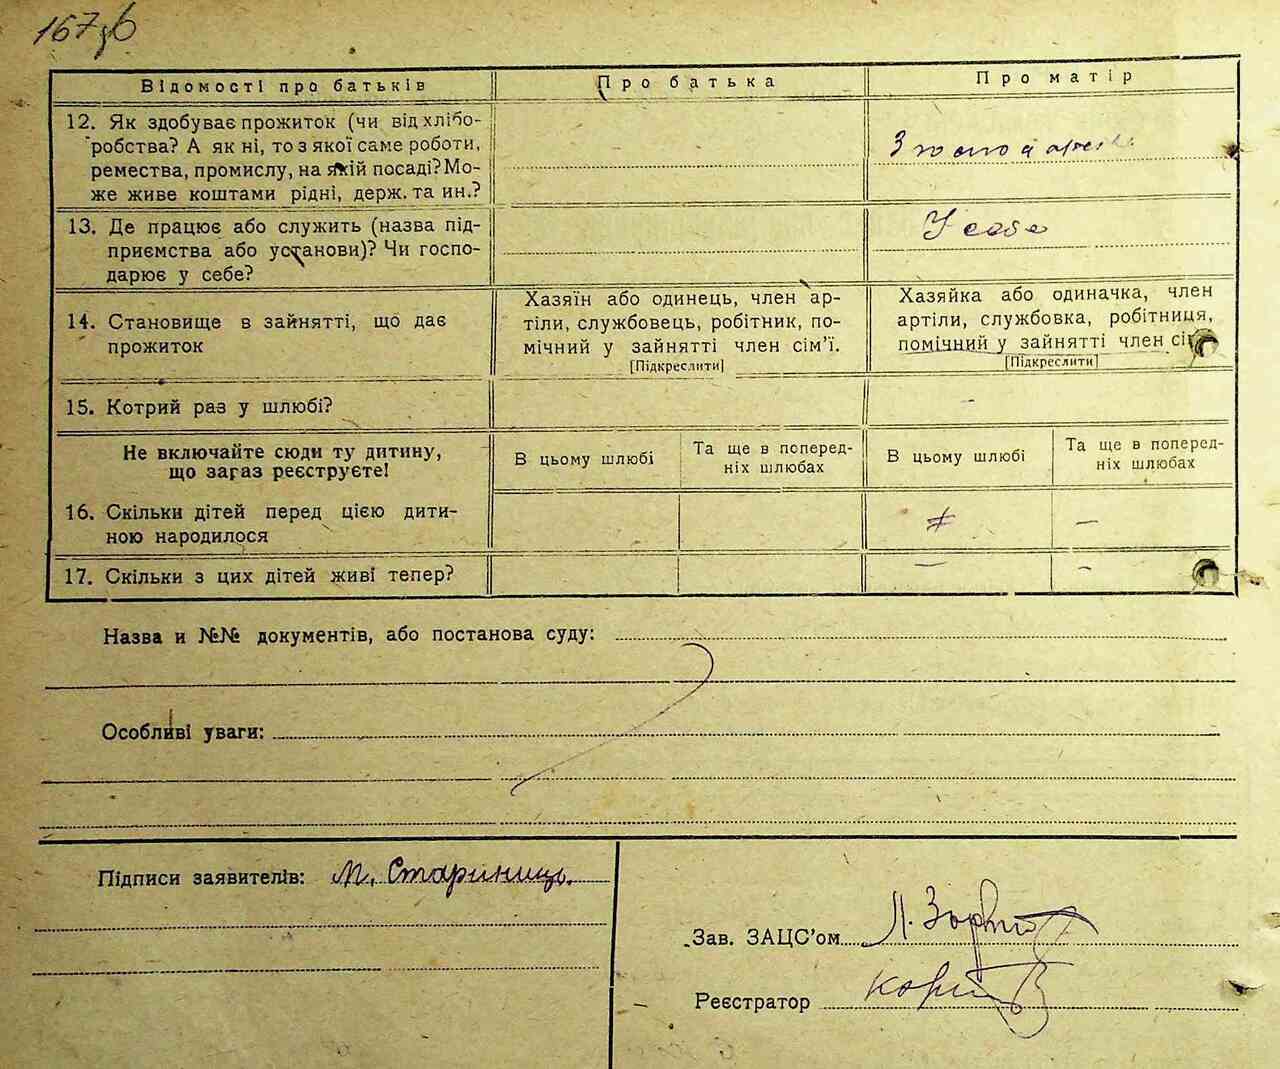 167
Відомості про батьків
Про батька
Про матір
12. Як здобуває прожиток (чи від хлібо-
робства? А як ні, то з якої саме роботи,
ремества, промислу, на якій посаді? Мо-
же живе коштами рідні, держ. та ин.?
З
13. Де працює або служить (назва під-
приємства або установи)? Чи госпо-
дарює у себе?
У себе
14. Становище в зайнятті, що дає
прожиток
Хазяїн або одинець, член ар-
тіли, службовець, робітник, по-
мічний у зайнятті член сім'ї.
[Підкреслити]
Хазяйка або одиначка, член
артіли, службовка, робітниця,
помічний у зайнятті член сі
[Підкреслити]
15. Котрий раз у шлюбі?
-
Не включайте сюди ту дитину,
що загаз реєструєте!
В цьому шлюбі
Та ще в поперед-
ніх шлюбах
В цьому шлюбі
Та ще в поперед-
ніх шлюбах
16. Скільки дітей перед цією дити-
ною народилося
—
17. Скільки з цих дітей живі тепер?
— -
Назва и №№ документів, або постанова суду:
Особливі уваги:
Підписи заявителів: М. Стариниць.
Зав. ЗАЦС'ом Л.
Реєстратор